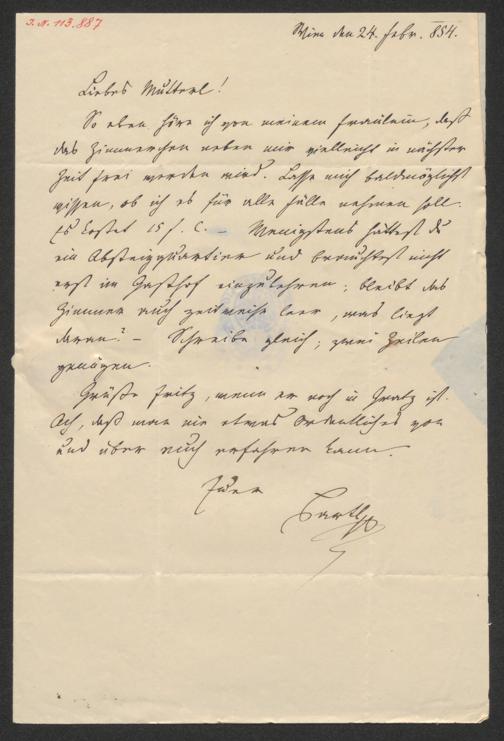 J. N. 113.887
Wien den 24. Febr. 854.
Liebes Mutterl!
So eben höre ich von meinem Fräulein, daß
das Zimmerchen neben mir vielleicht in nächster
Zeit frei werden wird. Lasse mich baldmöglichst
wissen, ob ich es für alle Fälle nehmen soll.
Es kostet 15 f. C. – Wenigstens hättest du
ein Absteigquartier und brauchtest nicht
erst im Gasthof einzukehren; bleibt das
Zimmer auch zeitweise leer, was liegt
daran? – Schreibe gleich; zwei Zeilen
genügen.
Grüße Fritz, wenn er noch in Gratz ist.
Ach, daß man nie etwas Ordentliches von
und über euch erfahren kann.
Euer